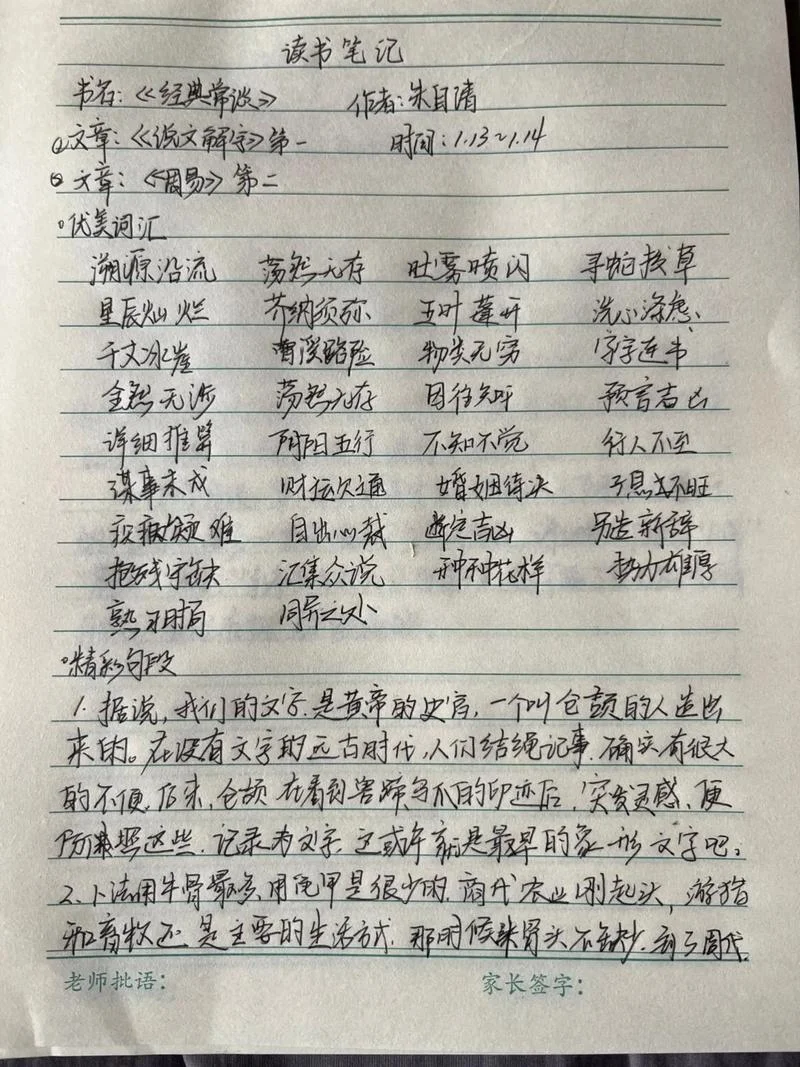 读书笔记
书名:《经典常谈》 作者:朱自清
①文章:《说文解字》第一 时间:1.13~1.14
② 文章:《周易》第二
优美词汇
溯源沿流 荡然无存 吐雾喷闪 寻蛇拨草
星辰灿烂 芥纳须弥 五叶莲开 洗心涤虑
千丈冰崖 路险 物类无穷 字字连书
全然无涉 荡然无存 因往知来 预言吉凶
详细推算 阴阳五行 不知不觉 行人不至
谋事未成 财运欠通 婚姻待决 子息不旺
疾难 自出心裁 断定吉凶 另造新辞
抱残守缺 汇集众说 种种花样 势力雄厚
熟习时局 同异之处
精彩句段
1. 据说,我们的文字是黄帝的史官,一个叫仓颉的人造出
来的。在没有文字的远古时代,人们结绳记事.确实有很大
的不便.后来,仓颉在看到兽蹄鸟爪的印迹后,突发灵感,便
仿照这些.记录为文字.这或许就是最早的象形文字吧。
2.卜法用牛骨最多,用龟甲是很少的.商代农业刚起头,游猎
和畜牧还是主要的生活方式.那时候牛骨头不缺少.到了周代,
老师批语: 家长签字: